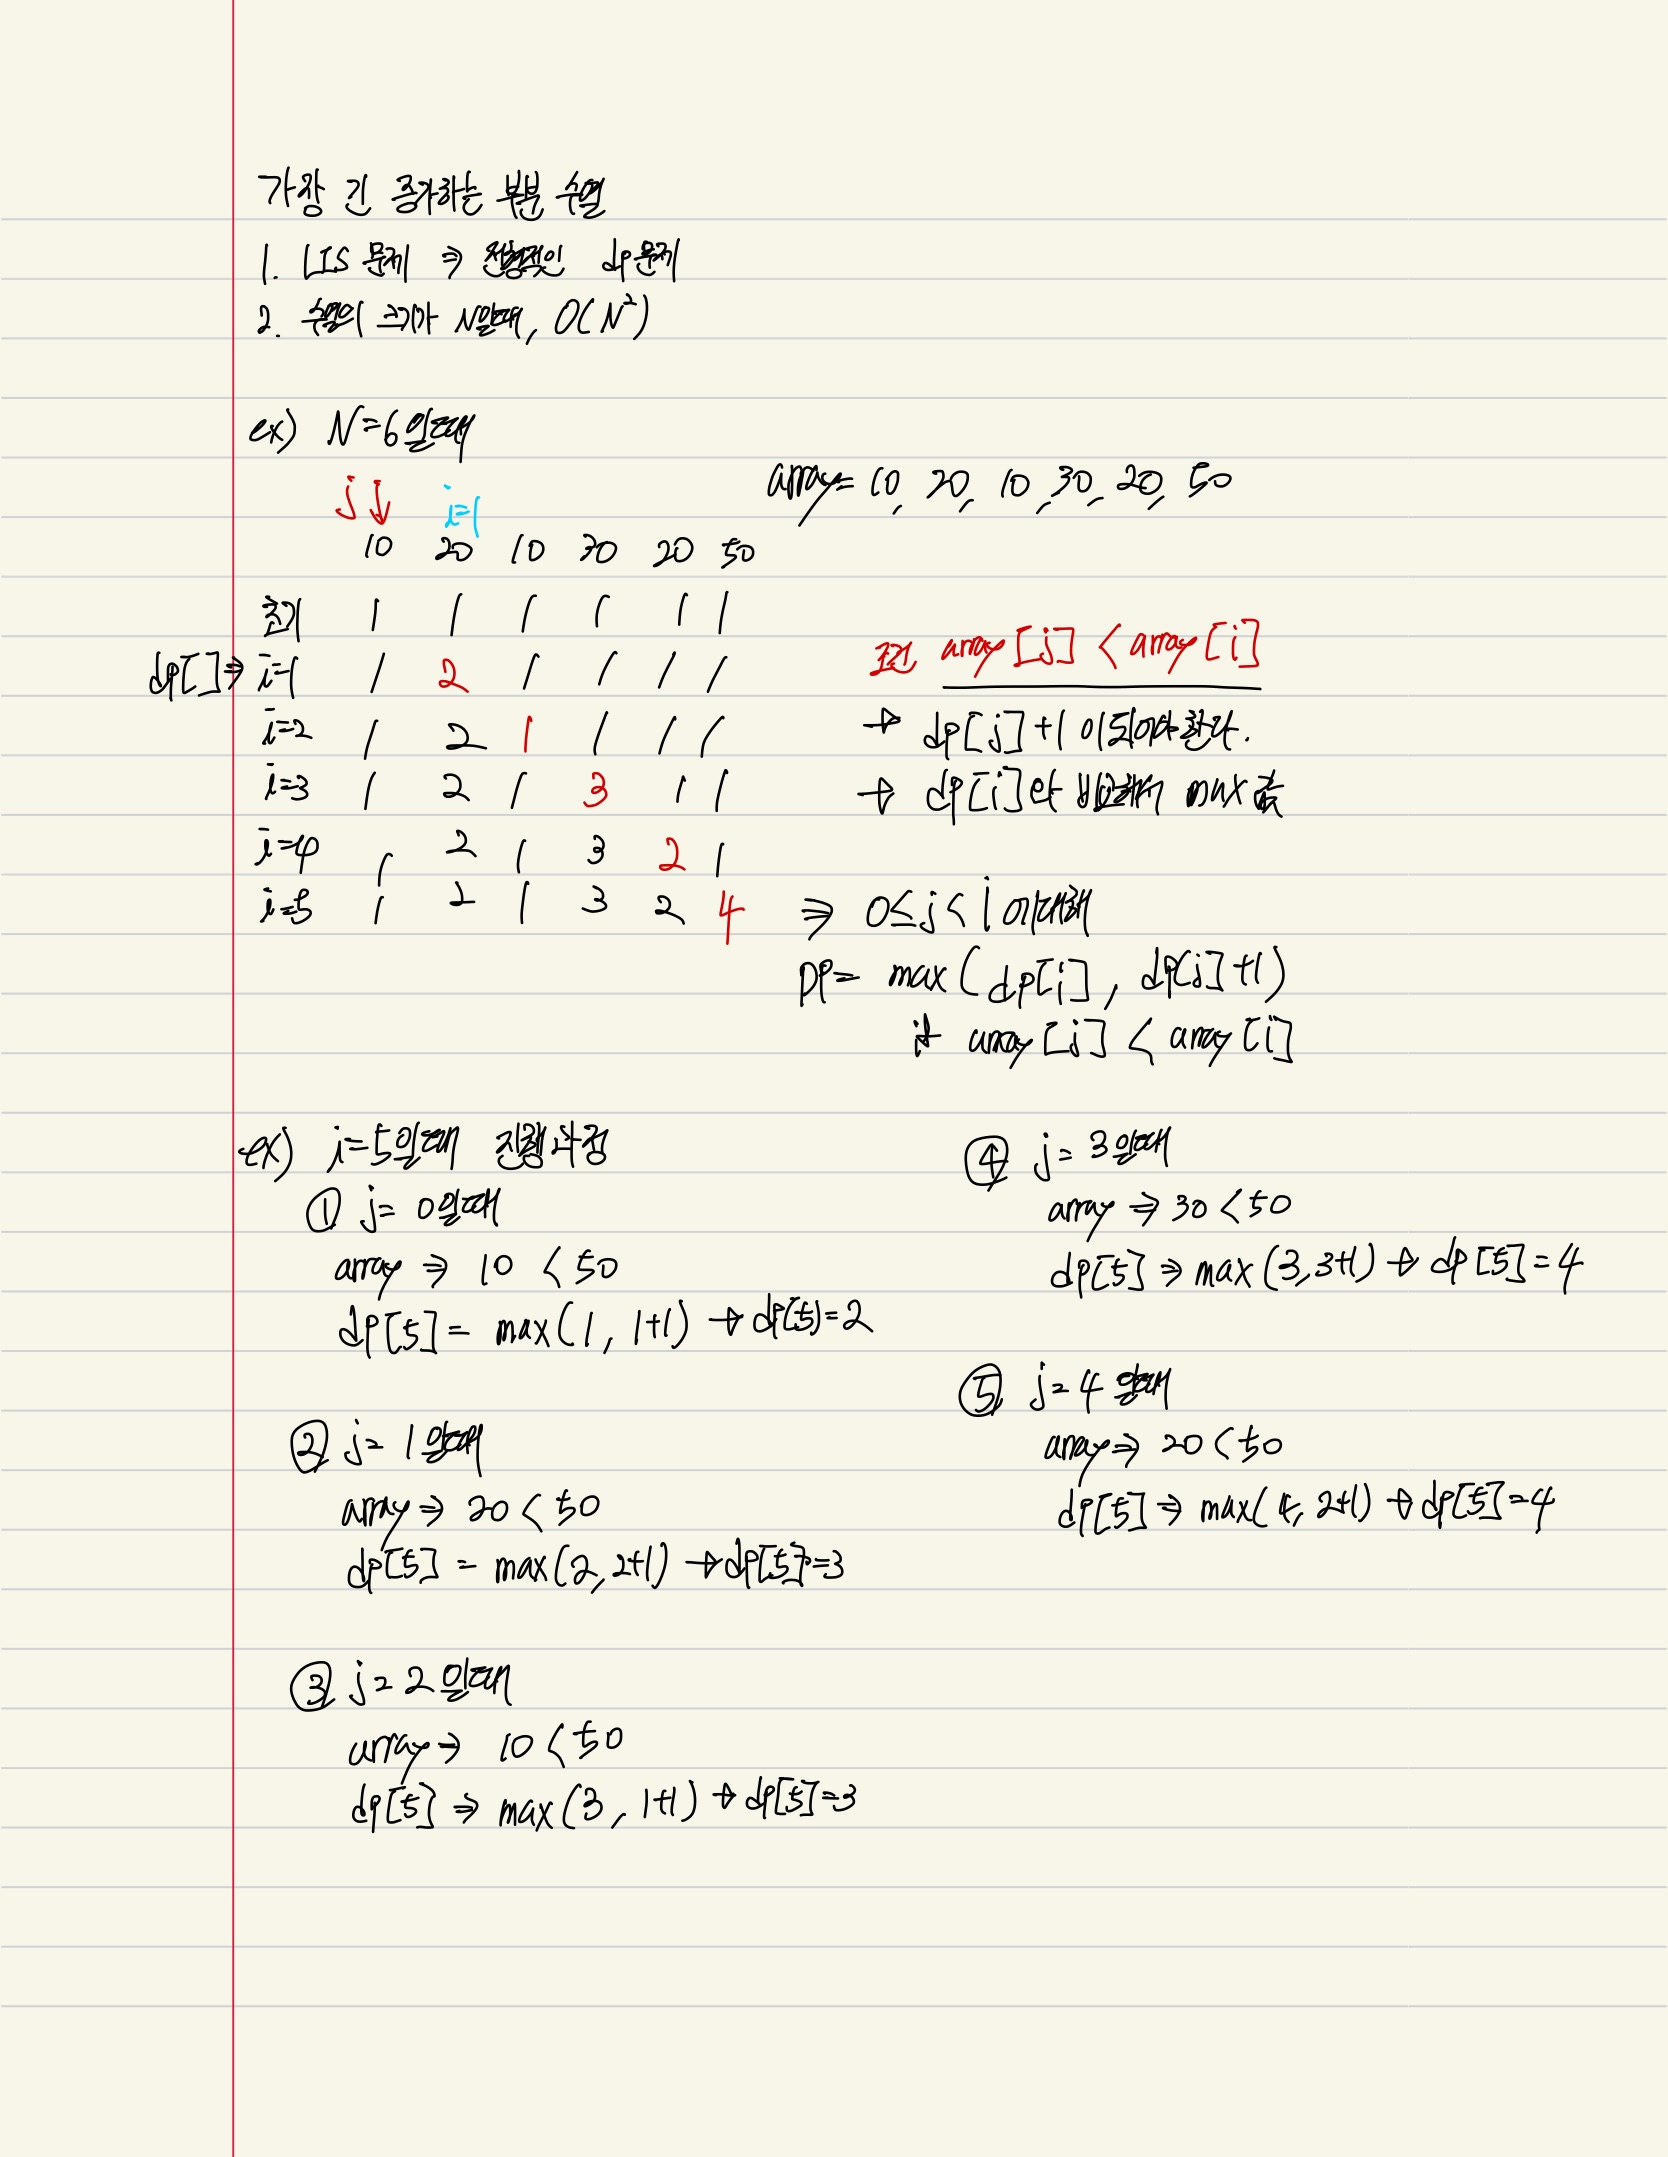 가장 긴 증가하는 부분 수열
1. LIS 문제 ⇒ 전형적인 dp문제
2. 수열의 크기가 N일때, O(N²)
ex) N=6일때
array= 10, 20, 10, 30, 20, 50
j↓ i=1
10 20 10 30 20 50
초기 1 1 1 1 1 1
dp[]⇒ i=1 1 2 1 1 1 1
i=2 1 2 1 1 1 1
i=3 1 2 1 3 1 1
i=4 1 2 1 3 2 1
i=5 1 2 1 3 2 4
조건 array[j] < array[i]
→ dp[j]+1 이되어야한다.
→ dp[i]와 비교해서 max값
⇒ 0≤j<i 에대해
DP= max(dp[i], dp[j]+1)
if array[j] < array[i]
ex) i=5일때 진행과정
① j= 0일때
array ⇒ 10 < 50
dp[5]= max(1, 1+1) → dp[5]=2
② j= 1일때
array ⇒ 20 < 50
dp[5] = max(2, 2+1) → dp[5]=3
③ j=2일때
array ⇒ 10 < 50
dp[5] ⇒ max(3, 1+1) → dp[5]=3
④ j= 3일때
array ⇒ 30 < 50
dp[5] ⇒ max(3, 3+1) → dp[5]=4
⑤ j=4 일때
array ⇒ 20 < 50
dp[5] ⇒ max(4, 2+1) → dp[5]=4